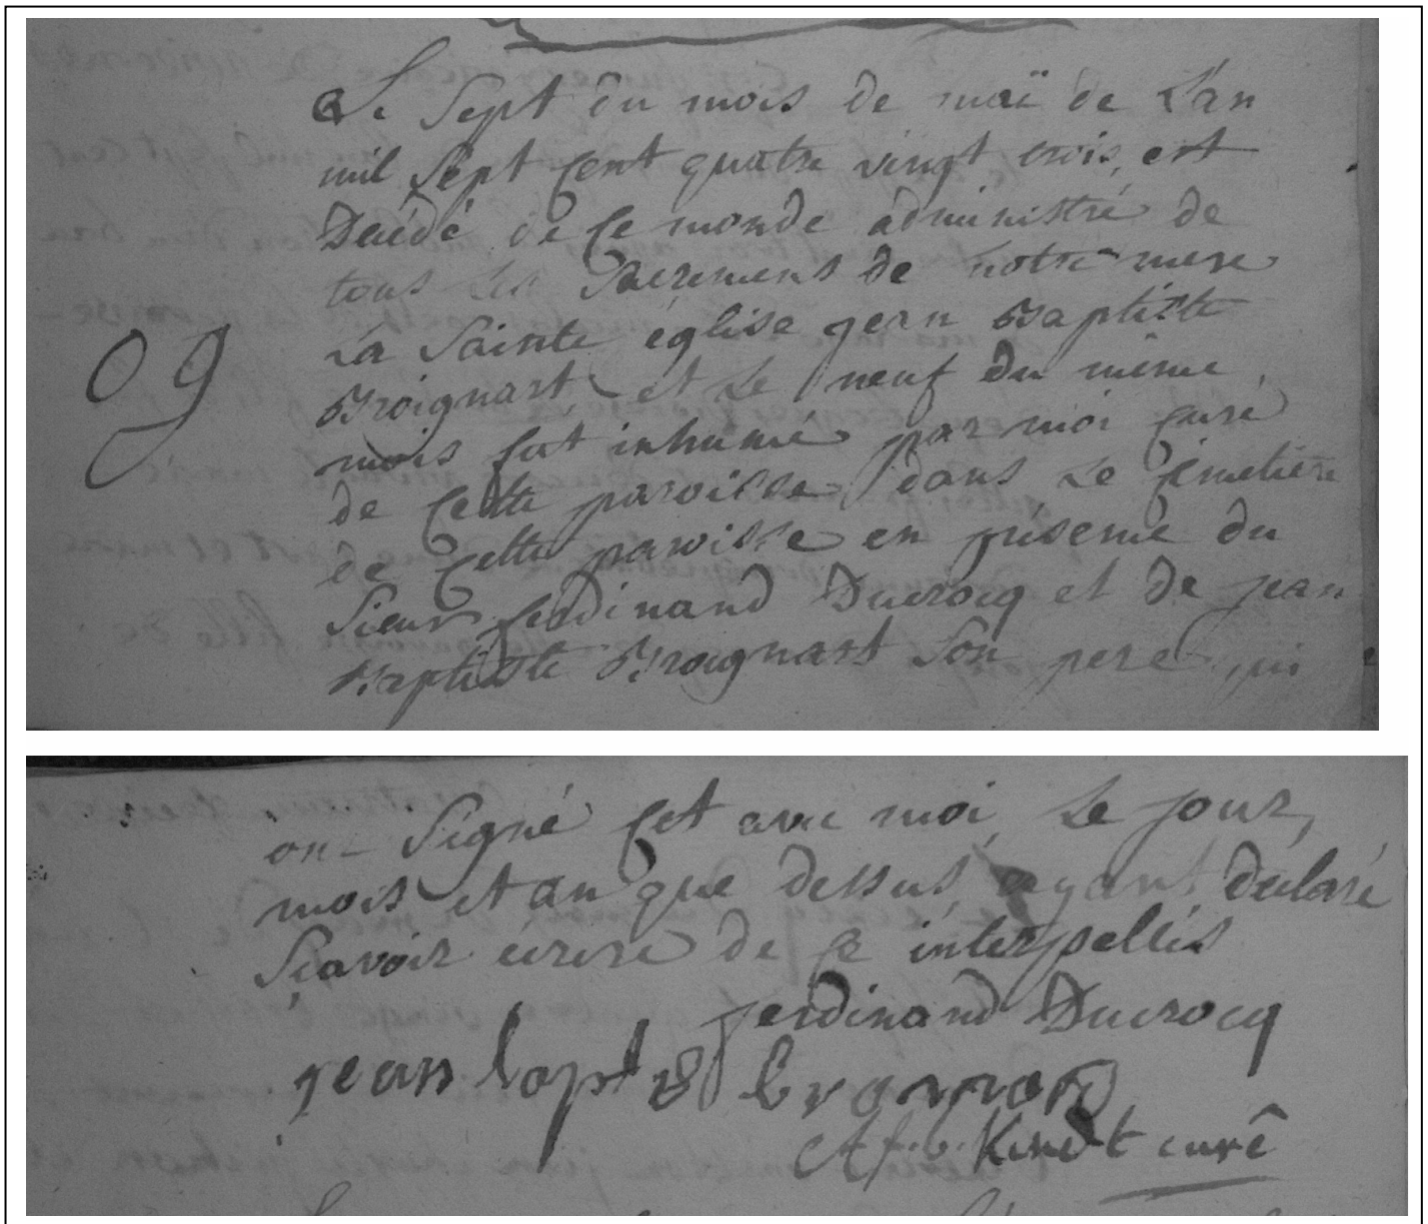 Le Sept du mois de maï de L'an
mil Sept Cent quatre vingt trois, est
Décédé de Ce monde administré de
tous les Sacremens de notre mere
La Sainte église jean Baptiste
Broignart et Le neuf du même
mois fut inhumé par moi Curé
09
de Cette paroisse, dans Le Cimetiere
de Cette paroisse en presence du
Sieur ferdinand Ducrocq et de jean
Baptiste Broignart Son pere qui
ont Signé Cet avec moi, Le jour,
mois et an que dessus, ayant déclaré
Sçavoir écrire de Ce interpellés
ferdinand Ducrocq
jean bapt
curé